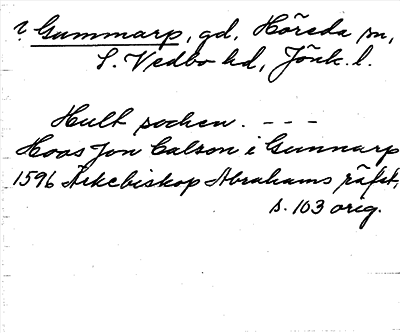 ? Gummarp, gd, Höreda sn,
S. Vedbo hd, Jönk. l.
Hult sochen. - - -
Hoos Jon Calson i Gunnarp
1596 Ärkebiskop Abrahams räfst,
s. 103 orig.